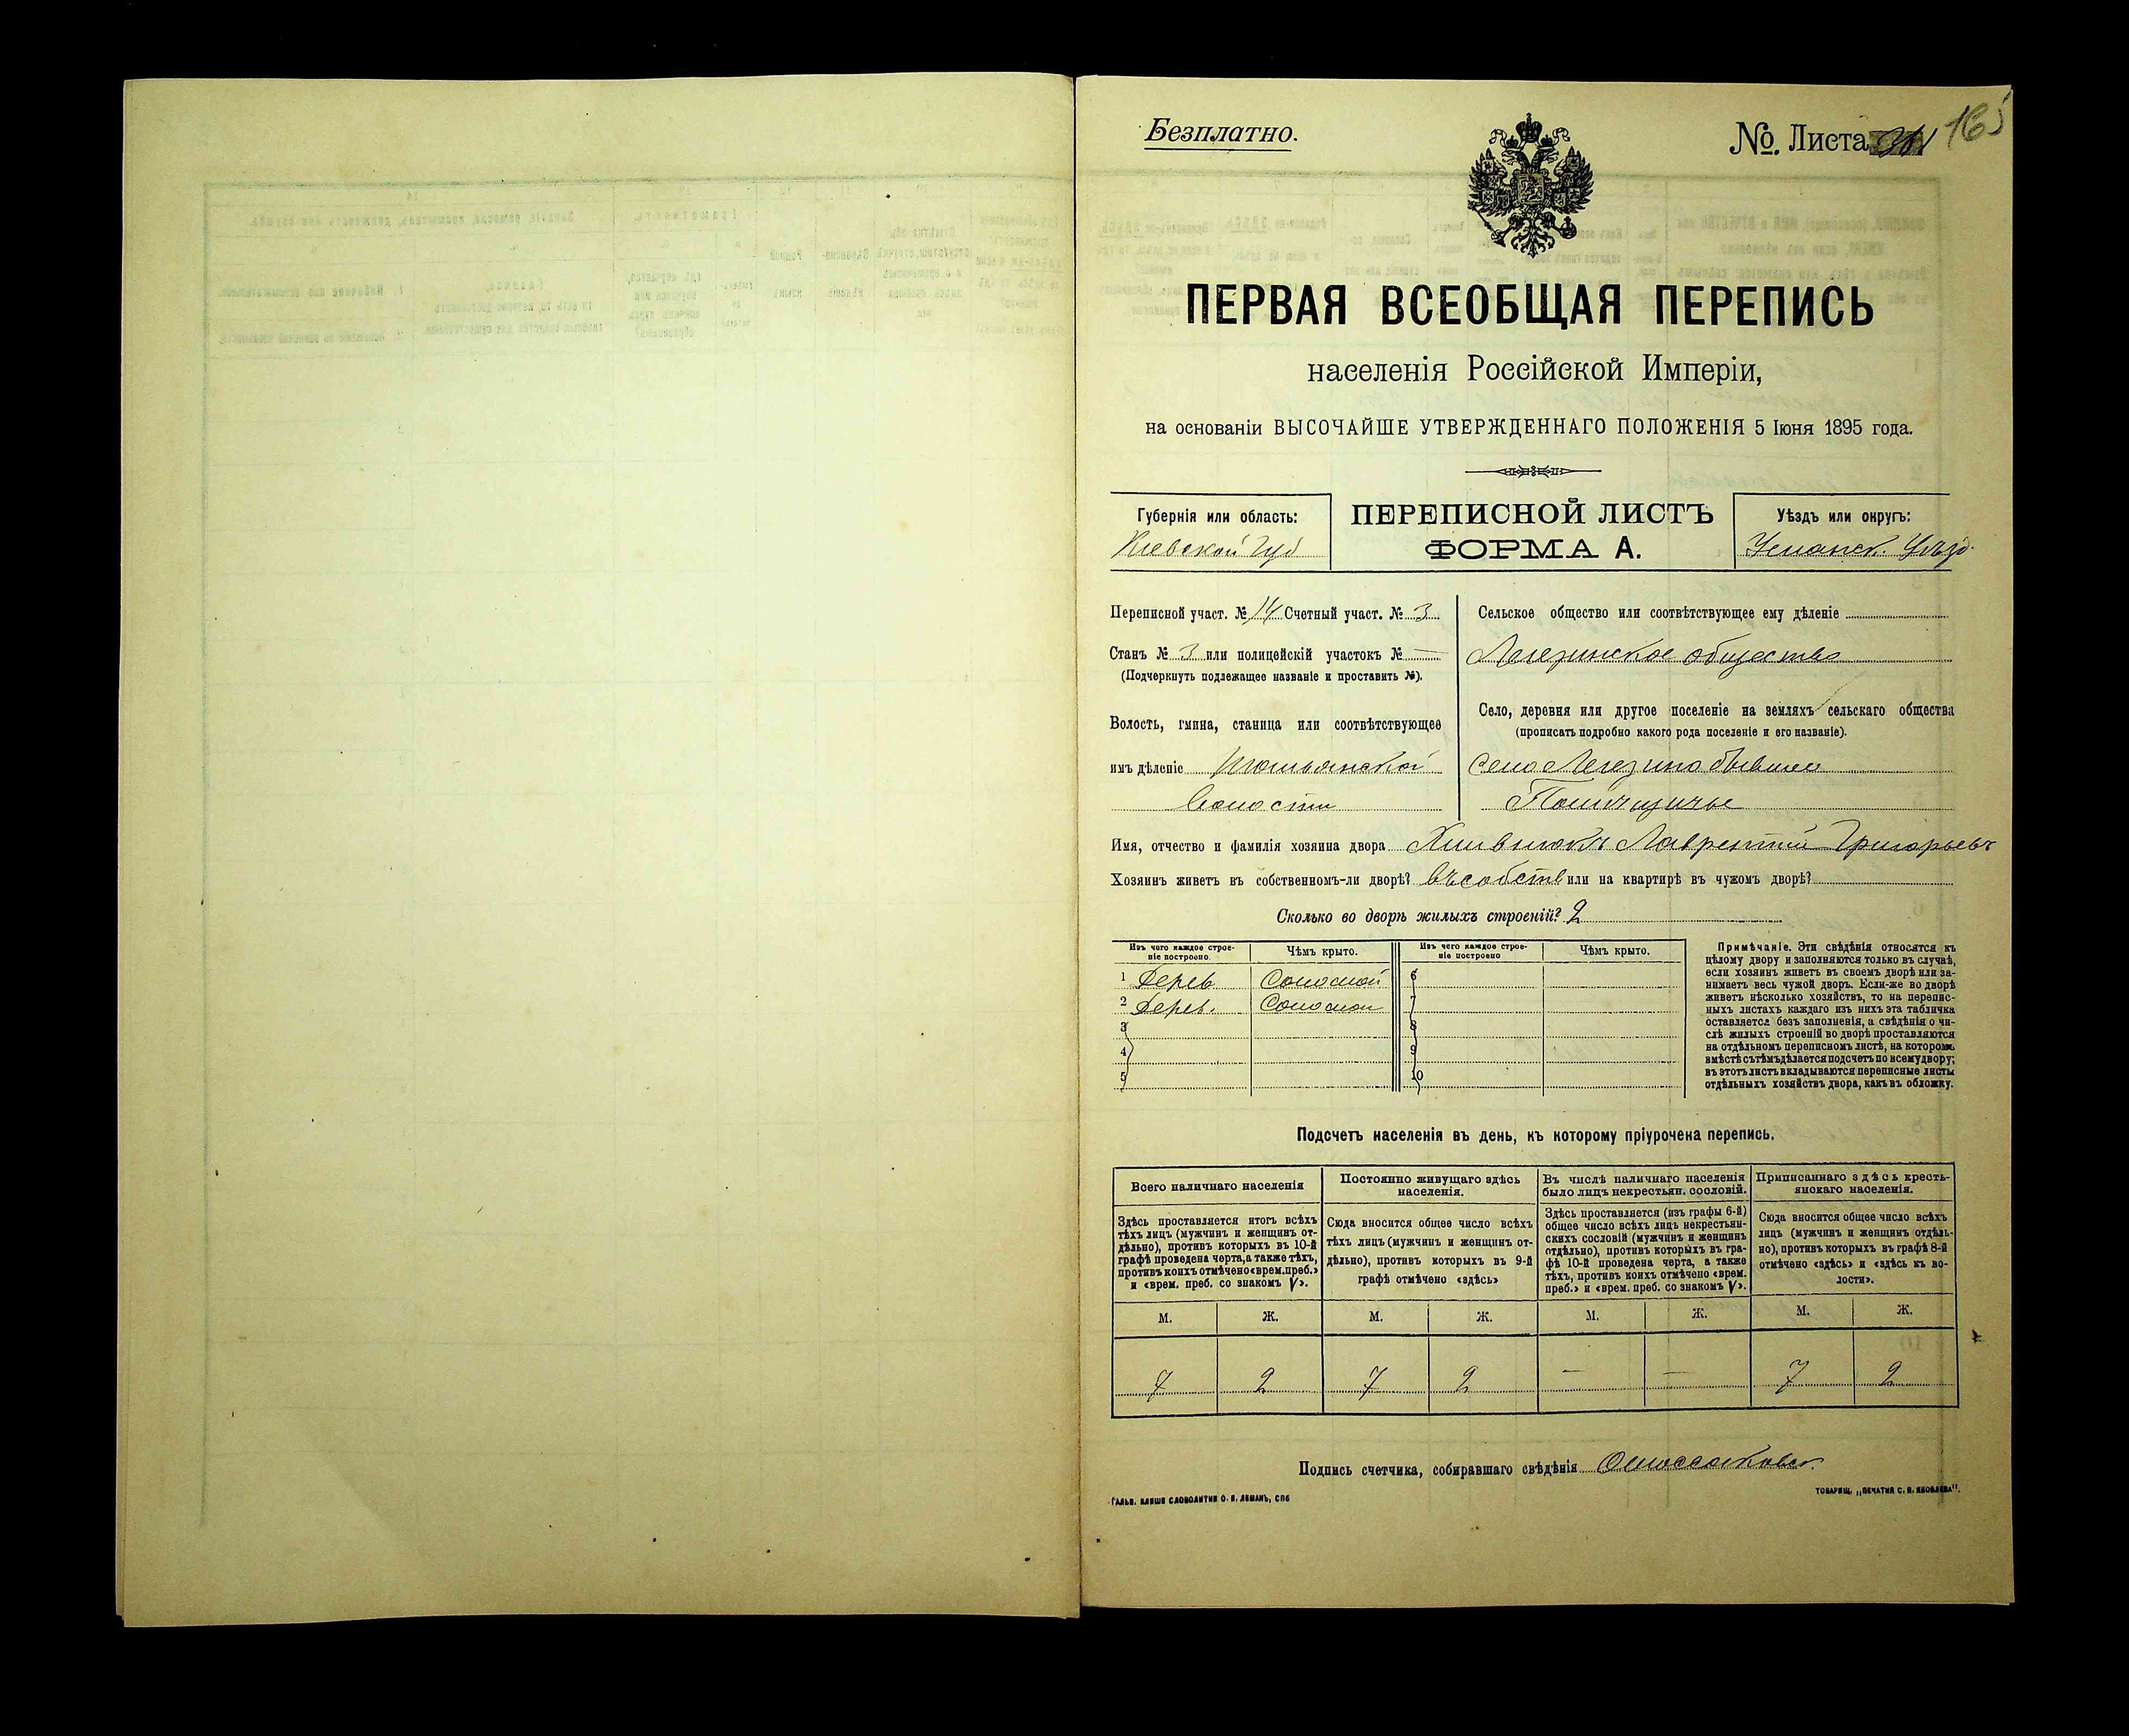 Безплатно.
№. Листа 165
ПЕРВАЯ ВСЕОБЩАЯ ПЕРЕПИСЬ
населенія Россійской Имперіи,
на основаніи ВЫСОЧАЙШЕ УТВЕРЖДЕННАГО ПОЛОЖЕНІЯ 5 Іюня 1895 года.
Губернія или область:
Кіевской Губ
ПЕРЕПИСНОЙ ЛИСТЪ
ФОРМА А.
Уѣздъ или округъ:
Уманск. Уѣзд.
Переписной участ. № 14 Счетный участ. № 3
Станъ № 3 или полицейскій участокъ № —
(Подчеркнуть подлежащее названіе и проставить №).
Волость, гмина, станица или соотвѣтствующее
имъ дѣленіе
Волости
Сельское общество или соотвѣтствующее ему дѣленіе
Легезинское общество
Село, деревня или другое поселеніе на земляхъ сельскаго общества
(прописать подробно какого рода поселеніе и его названіе).
Село Легезино бывшее
Помѣщичье
Имя, отчество и фамилія хозяина двора Лаврентій Григорьевъ
Хозяинъ живетъ въ собственномъ-ли дворѣ? въ собств или на квартирѣ въ чужомъ дворѣ?
Сколько во дворѣ жилыхъ строеній? 2
Изъ чего каждое строе-
ніе построено.
Чѣмъ крыто.
Изъ чего каждое строе-
ніе построено
Чѣмъ крыто.
1 Дерев. Соломой 6
2 Дерев. Соломой 7
3 8
4 9
5 10
Примѣчаніе. Эти свѣдѣнія относятся къ
цѣлому двору и заполняются только въ случаѣ,
если хозяинъ живетъ въ своемъ дворѣ или за-
нимаетъ весь чужой дворъ. Если-же во дворѣ
живетъ нѣсколько хозяйствъ, то на перепис-
ныхъ листахъ каждаго изъ нихъ эта табличка
оставляется безъ заполненія, а свѣдѣнія о чи-
слѣ жилыхъ строеній во дворѣ проставляются
на отдѣльномъ переписномъ листѣ, на которомъ
вмѣстѣ съ тѣмъ дѣлается подсчетъ по всему двору;
въ этотъ листъ вкладываются переписные листы
отдѣльныхъ хозяйствъ двора, какъ въ обложку.
Подсчетъ населенія въ день, къ которому пріурочена перепись.
Всего наличнаго населенія
Здѣсь проставляется итогъ всѣхъ
тѣхъ лицъ (мужчинъ и женщинъ от-
дѣльно), противъ которыхъ въ 10-й
графѣ проведена черта, а также тѣхъ,
противъ коихъ отмѣчено «врем. преб.»
и «врем. преб. со знакомъ V».
Постоянно живущаго здѣсь
населенія.
Сюда вносится общее число всѣхъ
тѣхъ лицъ (мужчинъ и женщинъ от-
дѣльно), противъ которыхъ въ 9-й
графѣ отмѣчено «здѣсь»
Въ числѣ наличнаго населенія
было лицъ некрестьян. сословій.
Здѣсь проставляется (изъ графы 6-й)
общее число всѣхъ лицъ некрестьян-
скихъ сословій (мужчинъ и женщинъ
отдѣльно), противъ которыхъ въ гра-
фѣ 10-й проведена черта, а также
тѣхъ, противъ коихъ отмѣчено «врем.
преб.» и «врем. преб. со знакомъ V».
Приписаннаго здѣсь кресть-
янскаго населенія.
Сюда вносится общее число всѣхъ
лицъ (мужчинъ и женщинъ отдѣль-
но), противъ которыхъ въ графѣ 8-й
отмѣчено «здѣсь» и «здѣсь къ во-
лости».
М. Ж. М. Ж. М. Ж. М. Ж.
7 2 7 2 — — 7 2
Подпись счетчика, собиравшаго свѣдѣнія
ГАЛЬВ. КЛИШЕ СЛОВОЛИТНИ О. И. ЛЕМАНЪ, СПБ
ТОВАРИЩ. „ПЕЧАТНЯ С. П. ЯКОВЛЕВА".